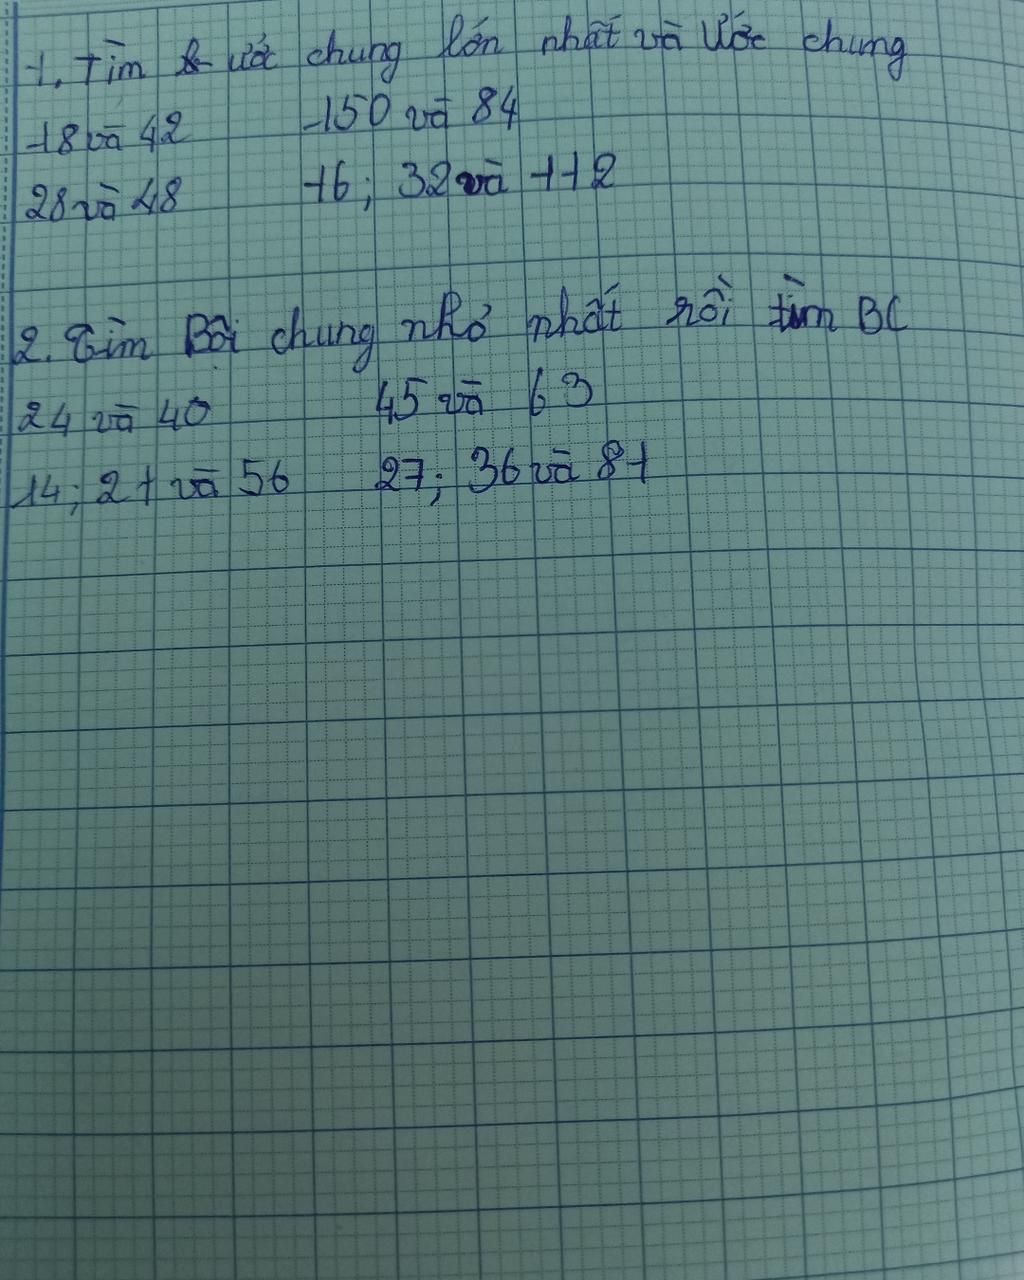 1. Tìm ước chung lớn nhất và Ước chung
18 và 42 150 và 84
28 và 48 16; 32 và 112
2. Tìm Bội chung nhỏ nhất rồi tìm BC
24 và 40 45 và 63
14; 21 và 56 27; 36 và 81